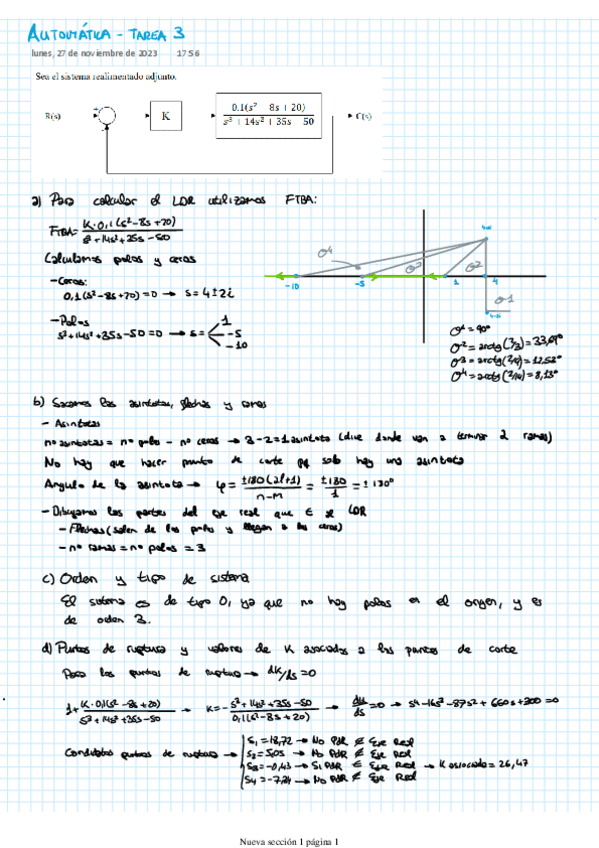 AUTOMÁTICA - TAREA 3
lunes, 27 de noviembre de 2023 17:56
Sea el sistema realimentado adjunto.
R(s) + K 0.1(s² 8s + 20) C(s)
s³ + 14s² + 35s 50
a) Para calcular el LDR utilizamos FTBA:
FTBA = K·0,1(s²-8s+20)
s³+14s²+35s-50
Calculamos polos y ceros
- Ceros:
0,1(s²-8s+20)=0 → s = 4±2i
- Polos
s³+14s²+35s-50=0 → s = 1
-5
-10
σ4 σ3 σ2
-10 -5 1 4
σ1
σ1 = 90°
σ2 = arctg(2/3) = 33,69°
σ3 = arctg(2/9) = 12,53°
σ4 = arctg(2/14) = 8,13°
b) Sacamos las asíntotas, flechas y ramas
- Asíntotas
nº asíntotas = nº polos - nº ceros → 3-2=1 asíntota (dice donde van a terminar 2 ramas)
No hay que hacer punto de corte pq solo hay una asíntota
Angulo de la asíntota → φ = ±180(2l+1) = ±180 = ±180°
n-m 1
- Dibujamos las partes del eje real que ∈ al LDR
- Flechas (salen de los polos y llegan a los ceros)
- nº ramas = nº polos = 3
c) Orden y tipo de sistema
El sistema es de tipo 0, ya que no hay polos en el origen, y es
de orden 3.
d) Puntos de ruptura y valores de K asociados a los puntos de corte
Para los puntos de ruptura → dK/ds = 0
1+ K·0,1(s²-8s+20) → K = - s³+14s²+35s-50 → dK = 0 → s⁴-16s³-87s²+660s+300=0
s³+14s²+35s-50 0,1(s²-8s+20) ds
Candidatos puntos de ruptura → S1 = 18,72 → No PdR ∉ Eje Real
S2 = 5,05 → No PdR ∉ Eje Real
S3 = -0,43 → Si PdR ∈ Eje Real → K asociado = 26,47
S4 = -7,34 → No PdR ∉ Eje Real
Nueva sección 1 página 1